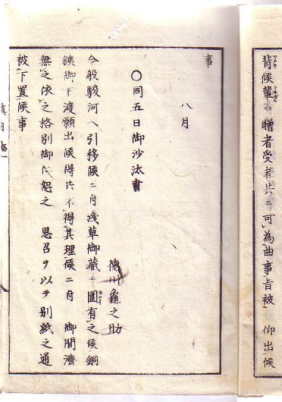 背候輩ハ贈者受者共ニ可為曲事旨被 仰出候
事
八月
○同五日御沙汰書
徳川龜之助
今般駿河ヘ引移候ニ付浅草御藏ニ圍有之候銅
御下渡願出候得共不得其理候ニ付 御聞濟
無之候之格別御仁恕之 思召ヲ以テ別紙之通
被下置候事